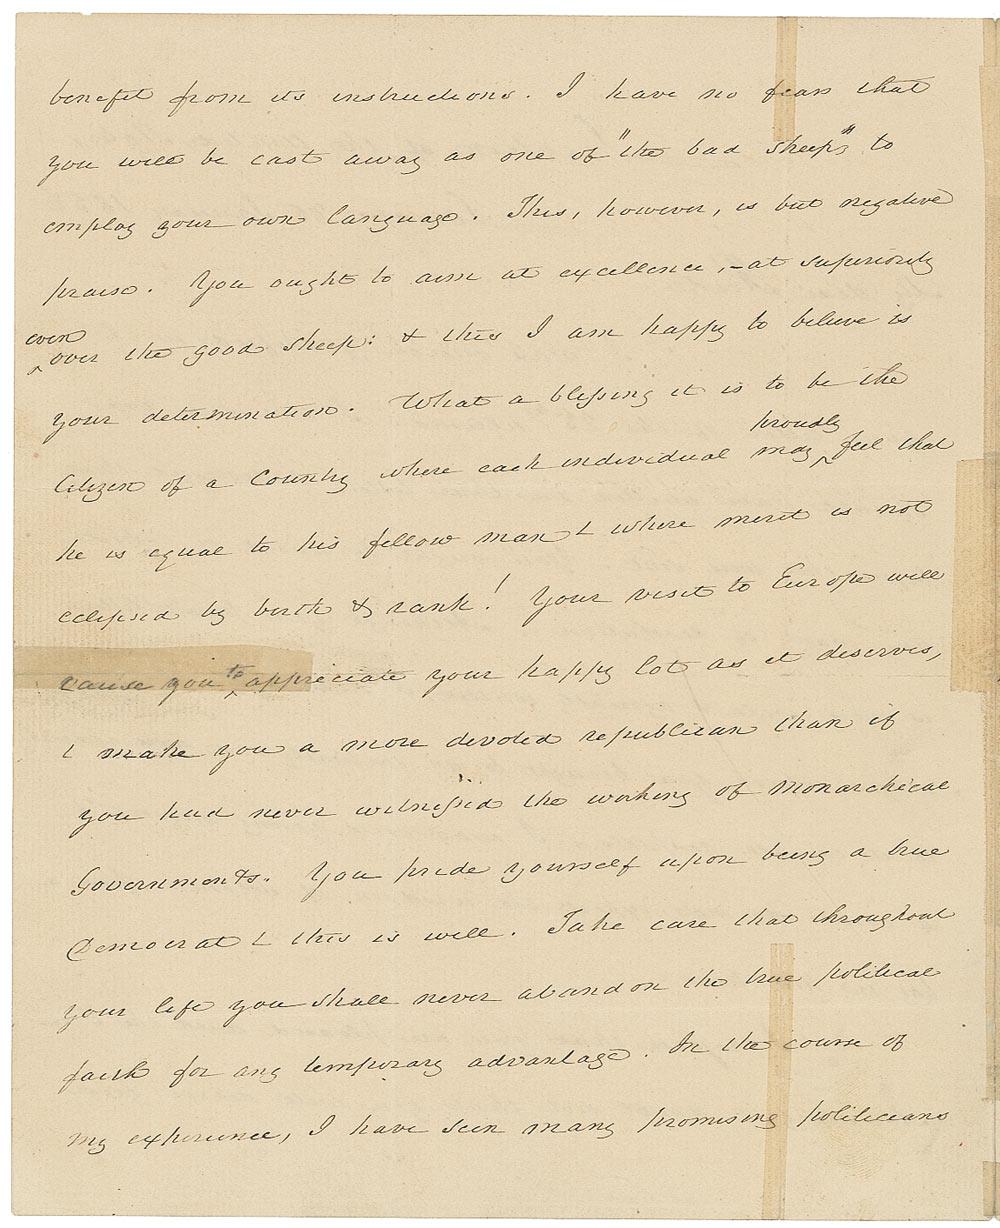 benefit from its instructions. I have no fears that
you will be cast away as one of "the bad sheep," to
employ your own language. This, however, is but negative
praise. You ought to aim at excellence, – at superiority
even
over the good sheep: & this I am happy to believe is
your determination. What a blessing it is to be the
Citizen of a Country where each individual may proudly feel that
he is equal to his fellow man & where merit is not
eclipsed by birth & rank! Your visit to Europe will
cause you to appreciate your happy lot as it deserves,
& make you a more devoted republican than if
you had never witnessed the working of Monarchical
Governments. You pride yourself upon being a true
Democrat & this is well. Take care that throughout
your life you shall never abandon the true political
faith for any temporary advantage. In the course of
my experience, I have seen many promising politicians